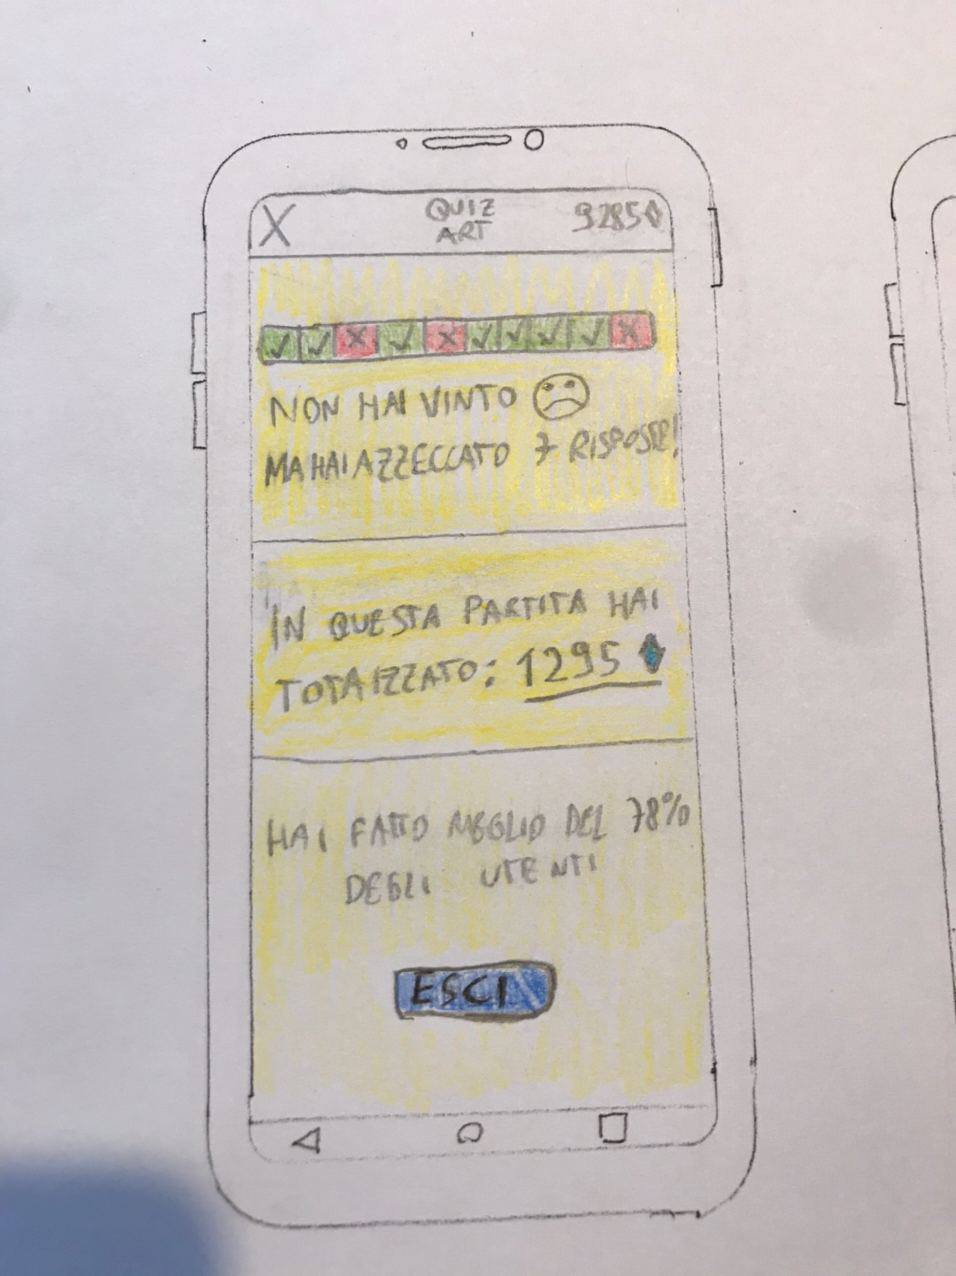 X
QUIZ
ART
9285
NON HAI VINTO
MA HAI AZZECCATO 7 RISPOSTE!
IN QUESTA PARTITA HAI
TOTAIZZATO: 1295
HAI FATTO MEGLIO DEL 78%
DEGLI UTENTI
ESCI